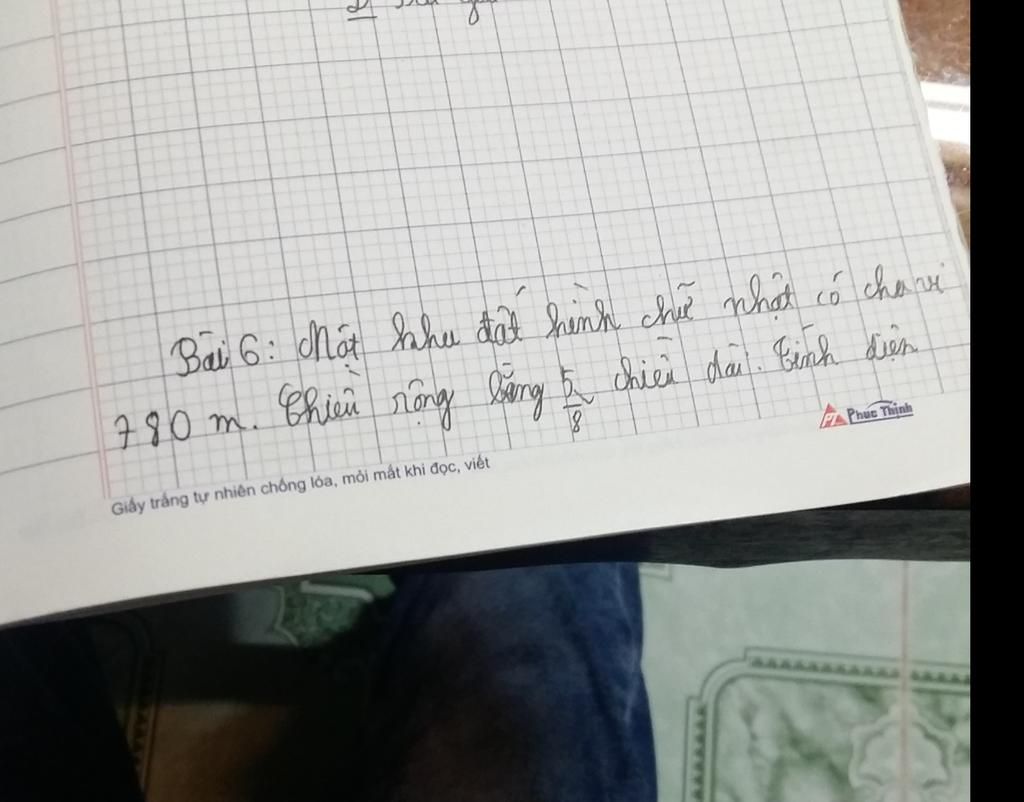 Bài 6: Một khu đất hình chữ nhật có chu vi
780 m. Chiều rộng bằng 5/8 chiều dài. Tính diện
PT Phuc Thinh
Giấy trắng tự nhiên chống lóa, mỏi mắt khi đọc, viết